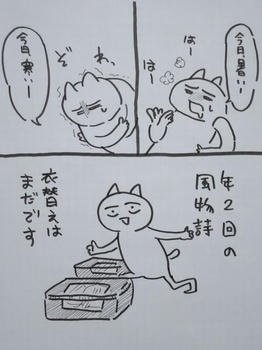 今日、暑いー
はー
はー
今日、寒いー
ぞわ、
年2回の
風物詩
衣替えは
まだです